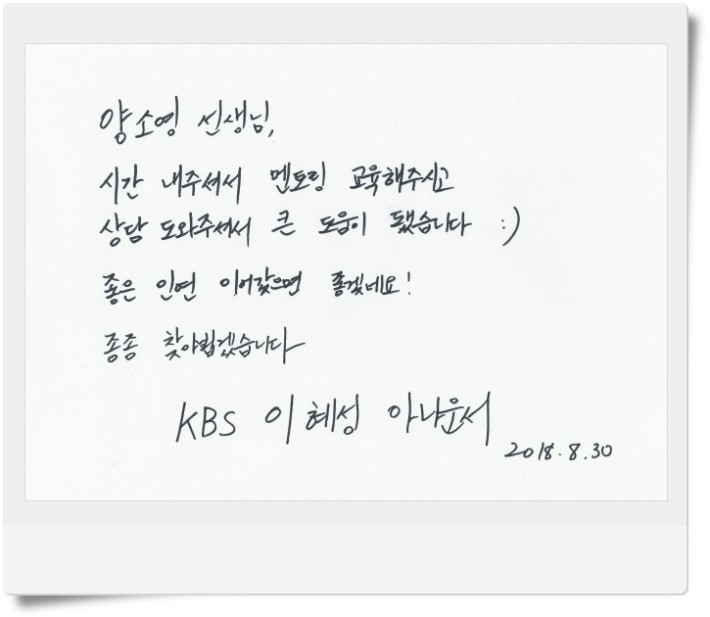 양소영 선생님,
시간 내주셔서 멘토링 교육해주시고
상담 도와주셔서 큰 도움이 됐습니다 :)
좋은 인연 이어갔으면 좋겠네요!
종종 찾아뵙겠습니다
KBS 이혜성 아나운서
2018.8.30